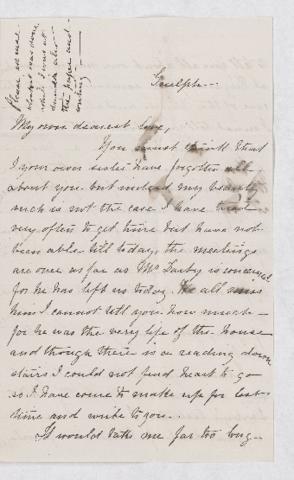 Please excuse
the paper and
writing—
Guelph—
My own dearest love,
You must think that
I your own sister have forgotten all
about you but indeed my beauty
such is not the case I have tried
very often to get time but have not
been able till today, the meetings
are over as far as Mr is concerned
for he has left us today. We all miss
him I cannot tell you how much—
for he was the very life of the house
and though there is a reading down
stairs I could not find heart to go
so I have come to make up for lost
time and write to you.
It would take me far too long—